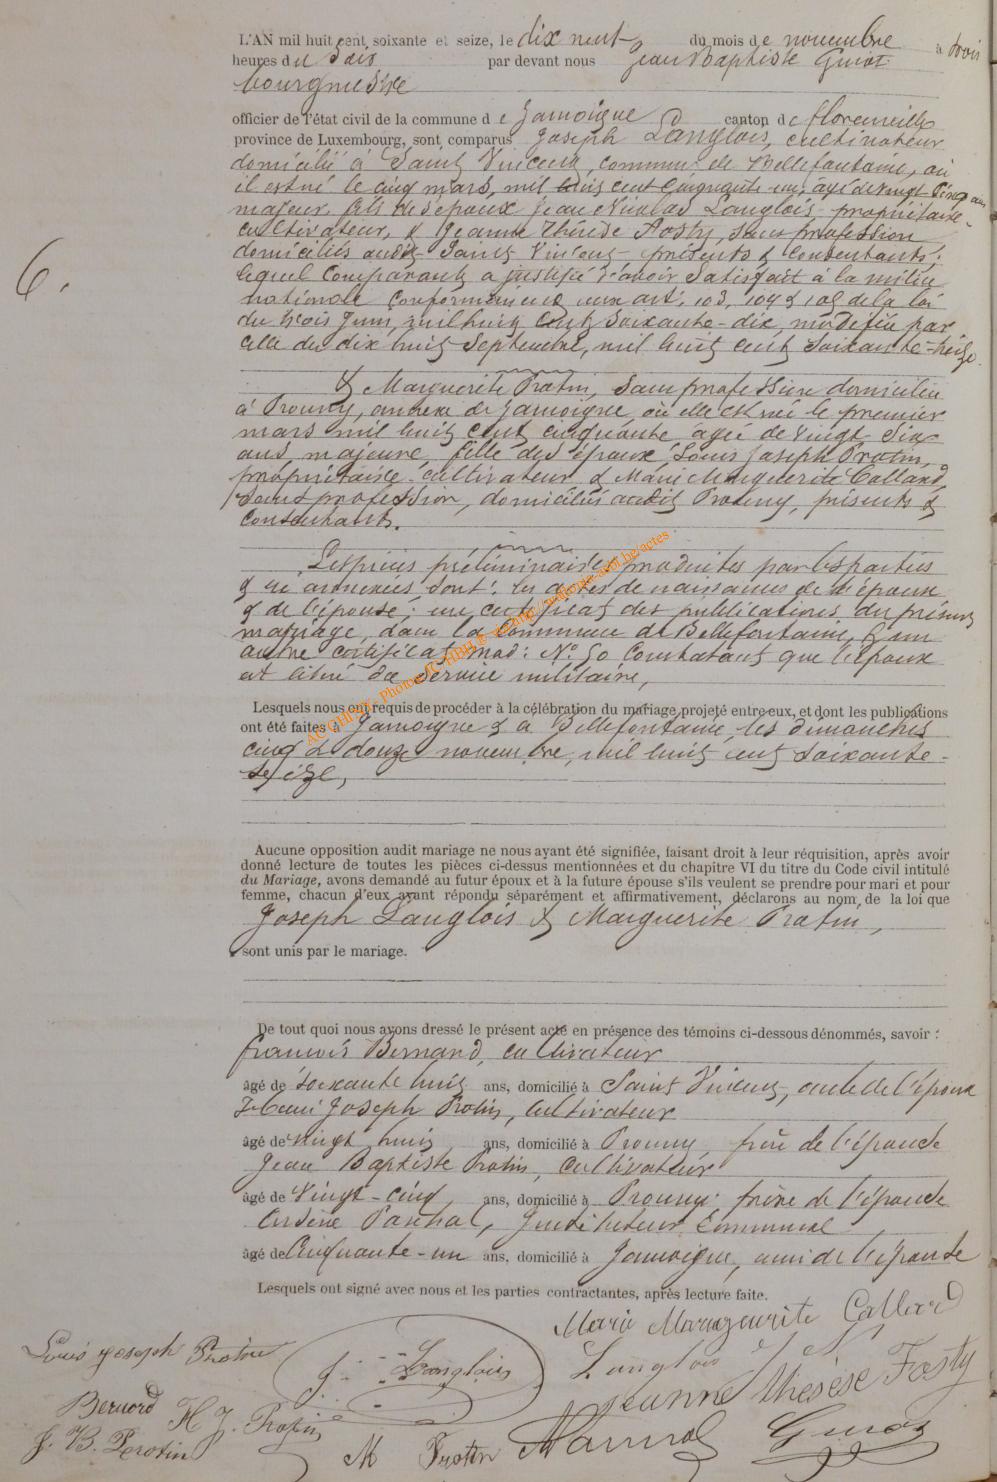 L'AN mil huit cent soixante et seize, le dix neuf du mois de novembre à trois
heures du soir par devant nous Jean Baptiste Guiot
bourgmestre
officier de l'état civil de la commune de Jamoigne canton de florenville
province de Luxembourg, sont comparus Joseph Langlois, cultivateur
domicilié à Saint Vincent, commune de Bellefontaine, où
il est né le cinq mars, mil huit cent cinquante un, âgé de vingt cinq ans
majeur, fils des époux Jean Nicolas Langlois propriétaire-
cultivateur, & Jeanne Thérèse Fosty, sans profession
domiciliés audit Saint Vincent, présents & consentants;
lequel comparant a justifié d'avoir satisfait à la milice
nationale conformément aux art: 103, 104 & 105 de la loi
du trois Juin, mil huit cent soixante-dix, modifiée par
celle du dix huit Septembre, mil huit cent soixante-treize.
6.
& Marguerite Protin, sans profession domiciliée
à Prouvy, annexe de Jamoigne où elle est née le premier
mars mil huit cent cinquante âgée de vingt six
ans, majeure, fille des époux Louis Joseph Protin,
propriétaire-cultivateur & Marie Marguerite Collard,
sans profession, domiciliés audit Prouvy, présents &
consentants.
Les pièces préliminaires produites par les parties
& ci annexées sont: les actes de naissances de l'époux
& de l'épouse; un certificat des publications du présent
mariage, dans la commune de Bellefontaine, & un
autre certificat mod: N° 50 constatant que l'époux
est libéré du service militaire,
Lesquels nous ont requis de procéder à la célébration du mariage projeté entre eux, et dont les publications
ont été faites à Jamoigne & à Bellefontaine, les dimanches
cinq & douze novembre, mil huit cent soixante-
seize,
Aucune opposition audit mariage ne nous ayant été signifiée, faisant droit à leur réquisition, après avoir
donné lecture de toutes les pièces ci-dessus mentionnées et du chapitre VI du titre du Code civil intitulé
du Mariage, avons demandé au futur époux et à la future épouse s'ils veulent se prendre pour mari et pour
femme, chacun d'eux ayant répondu séparément et affirmativement, déclarons au nom de la loi que
Joseph Langlois & Marguerite Protin,
sont unis par le mariage.
De tout quoi nous avons dressé le présent acte en présence des témoins ci-dessous dénommés, savoir :
françois Bernard, cultivateur
âgé de soixante huit ans, domicilié à Saint Vincent, oncle de l'époux
Henri Joseph Protin, cultivateur
âgé de vingt huit ans, domicilié à Prouvy, frère de l'épouse
Jean Baptiste Protin, cultivateur
âgé de Vingt-cinq ans, domicilié à Prouvy, frère de l'épouse
Paschal, Instituteur communal
âgé de Cinquante-un ans, domicilié à Jamoigne, ami de l'épouse
Lesquels ont signé avec nous et les parties contractantes, après lecture faite.
Marie Marguerite Collard
Louis joseph Protin J. Langlois Langlois
Jeanne thèsèse Fosty
Bernard H J. Protin
J. B. Protin M Protin Guiot